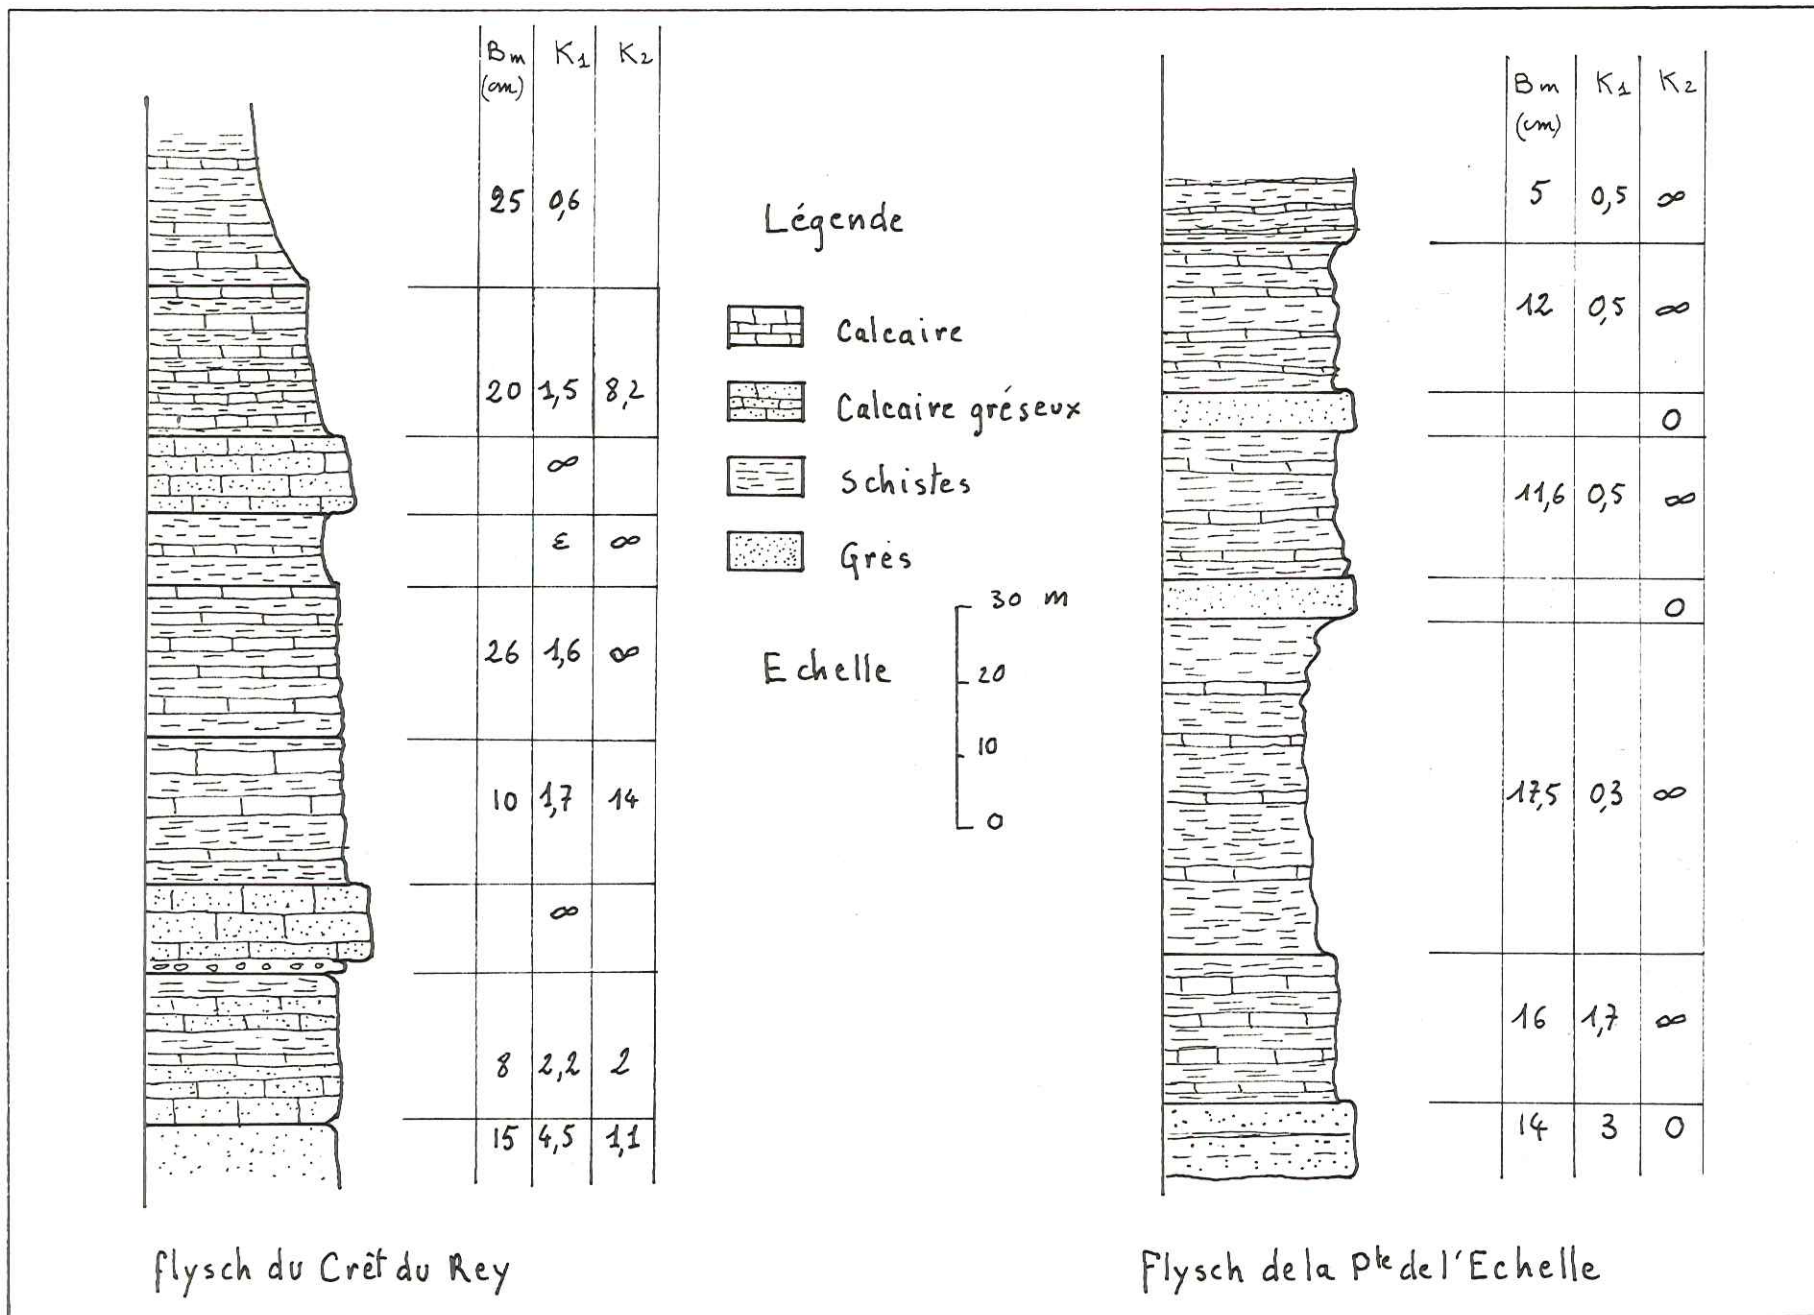 Bm K1 K2
(cm)
25 0,6
20 1,5 8,2
∞
ε ∞
26 1,6 ∞
10 1,7 14
∞
8 2,2 2
15 4,5 1,1
flysch du Crêt du Rey
Légende
Calcaire
Calcaire gréseux
Schistes
Grès
Echelle
30 m
20
10
0
Bm K1 K2
(cm)
5 0,5 ∞
12 0,5 ∞
0
11,6 0,5 ∞
0
17,5 0,3 ∞
16 1,7 ∞
14 3 0
Flysch de la Pte de l'Echelle